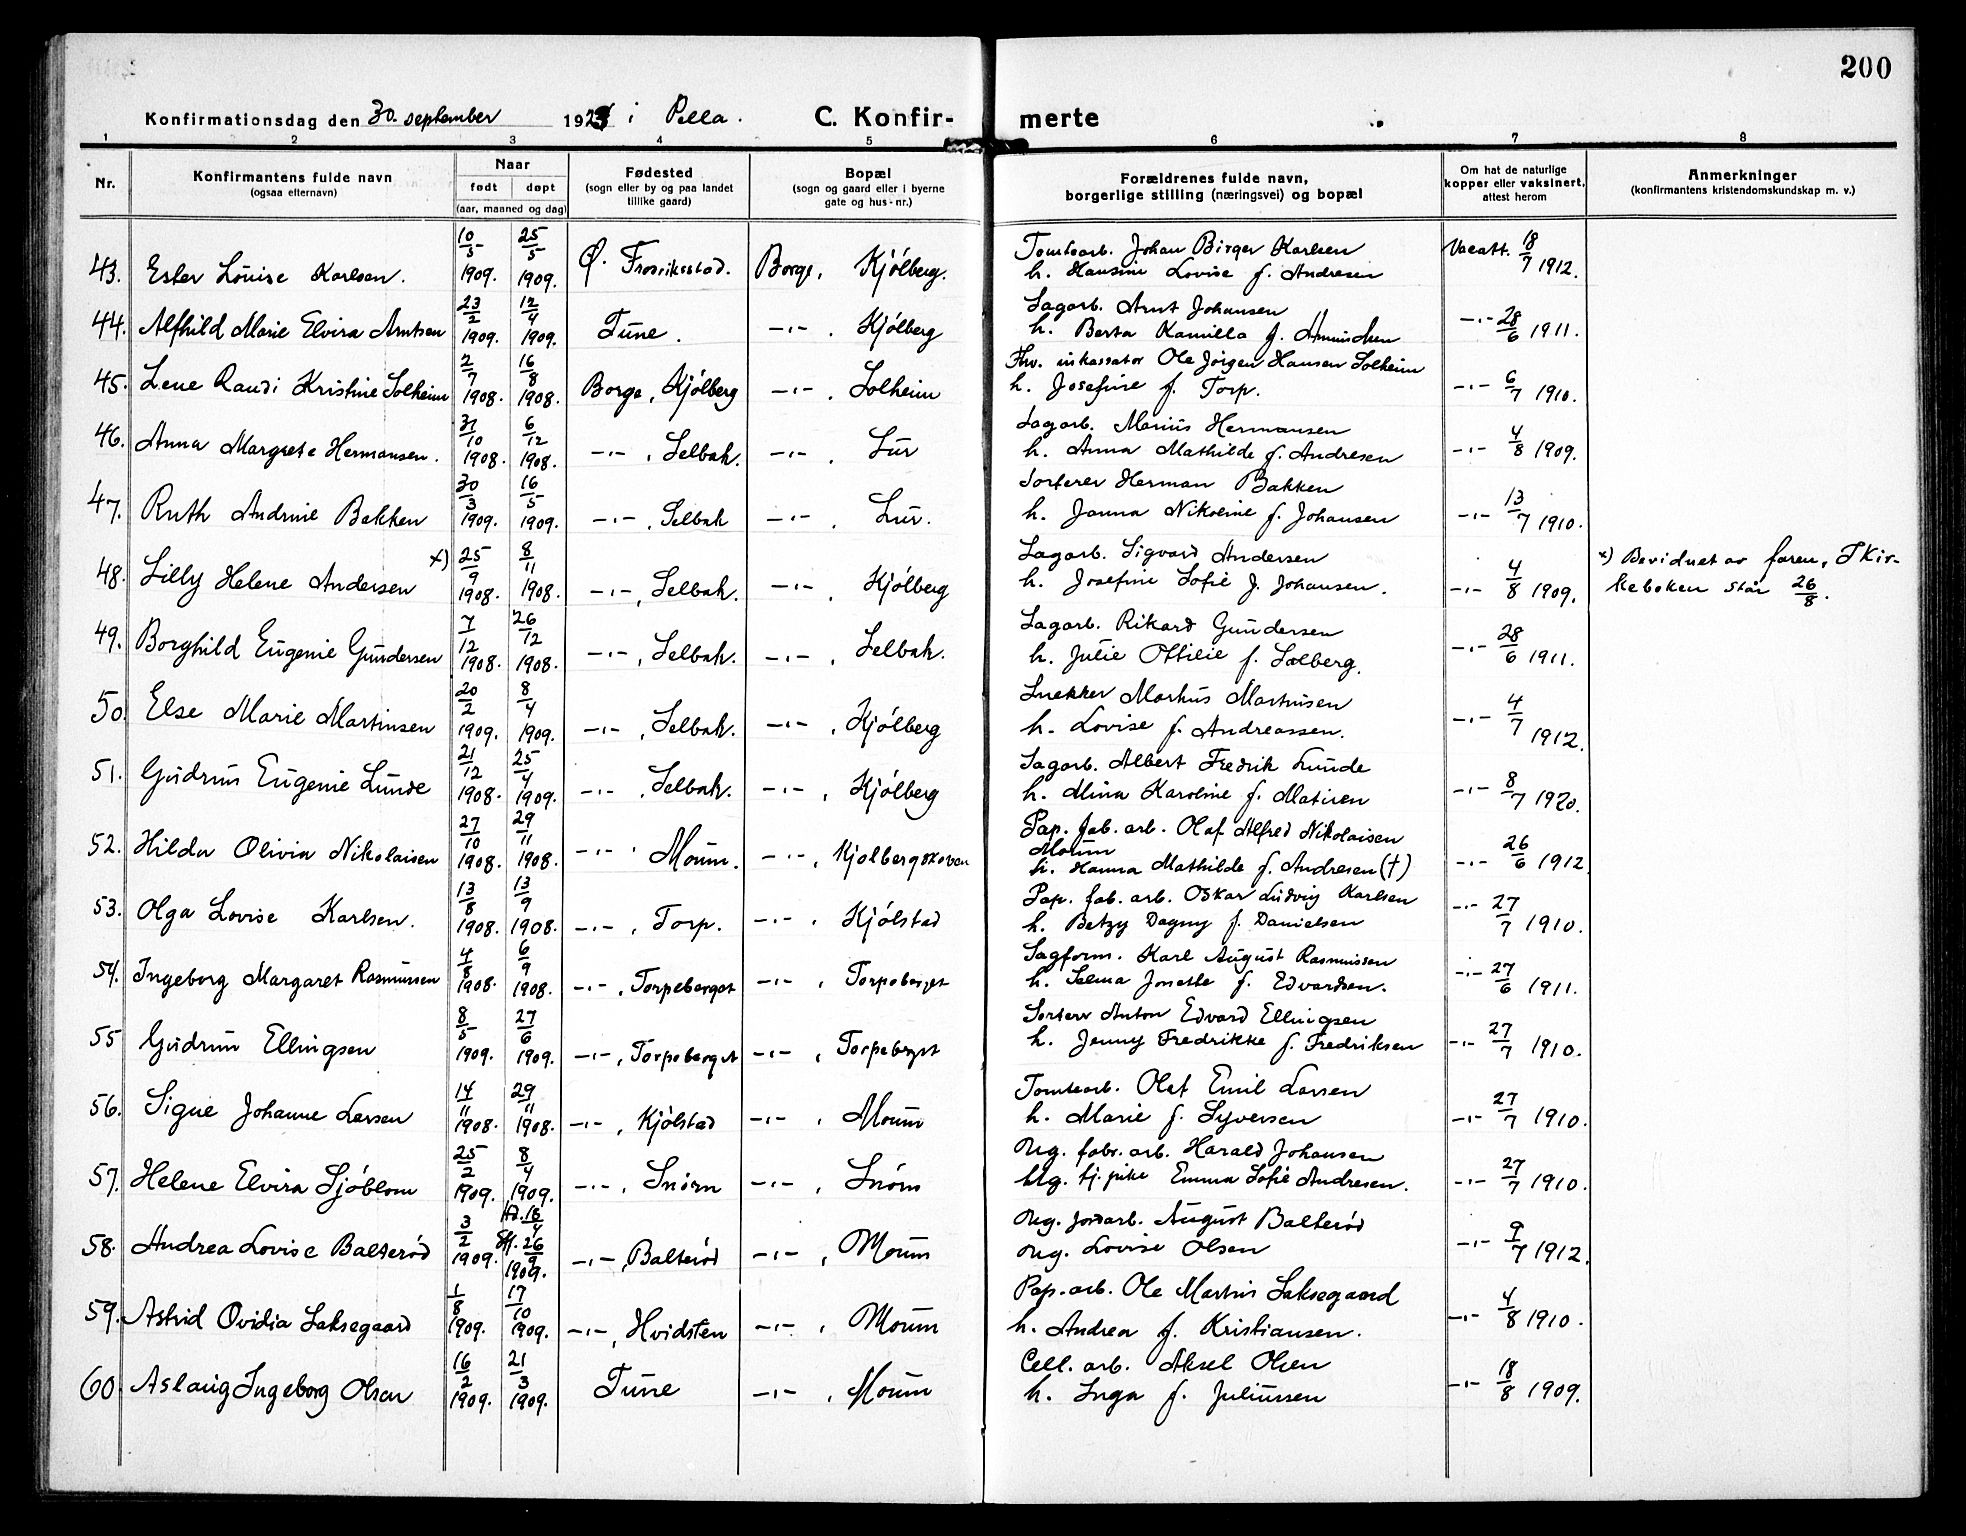 200
Konfirmationsdag den 30. september 192 i Pella. C. Konfir- merte
1 2 3 4 5 6 7 8
Nr. Konfirmantens fulde navn (ogsaa efternavn) Naar født døpt (aar, maaned og dag) Fødested (sogn eller by og paa landet tillike gaard) Bopæl (sogn og gaard eller i byerne gate og hus-nr.) Forældrenes fulde navn, borgerlige stilling (næringsvei) og bopæl Om hat de naturlige kopper eller vaksinert, attest herom Anmerkninger (konfirmantens kristendomskundskap m. v.)
43. Ester Louise Karlsen. 10/5 1909. 25/5 1909. Ø. Fredriksstad. Borge, Kjølberg. Tomtearb. Johan Birger Karlsen Vacatt. 18/7 1912.
h. Hansine Lovise f. Andresen
44. Alfhild Marie Elvira Arntsen 23/2 1909. 12/4 1909. Tune. —"— . Kjølberg Sagarb. Arnt Johansen —"— 28/6 1911.
h. Berta Kamilla f. Amundsen
45. Lene Randi Kristine Solheim 2/7 1908. 16/8 1908. Borge, Kjølberg —"— . Solheim Fhv. inkassator Ole Jørgen Hansen Solheim —"— 6/7 1910.
h. Josefine f. Torp.
46. Anna Margrete Hermansen. 31/10 1908. 6/12 1908. —"— , Selbak. —"— . Lur Sagarb. Marius Hermansen —"— 4/8 1909.
h. Anna Mathilde f. Andresen
47. Ruth Andrine Bakken 30/3 1909. 16/5 1909. —"— , Selbak —"— . Lur. Sorterer Herman Bakken —"— 13/7 1910.
h. Janna Nikoline f. Johansen
48. Lilly Helene Andersen x) 25/9 1908. 8/11 1908. —"— , Selbak. —"— , Kjølberg Sagarb. Sigvard Andersen —"— 4/8 1909. x) Bevidnet av faren, I Kir-
h. Josefine Sofie f. Johansen. keboken står 26/8.
49. Borghild Eugenie Gundersen 7/12 1908. 26/12 1908. —"— , Selbak. —"— , Selbak. Sagarb. Rikard Gundersen —"— 28/6 1911.
h. Julie Ottilie f. Solberg.
50. Else Marie Martinsen 20/2 1909. 8/4 1909. —"— , Selbak. —"— , Kjølberg Snekker Markus Martinsen —"— 4/7 1912.
h. Lovise f. Andreassen.
51. Gudrun Eugenie Lunde 21/12 1908. 25/4 1909. —"— , Selbak. —"— , Kjølberg Sagarb. Albert Fredrik Lunde —"— 8/7 1920.
h. Mina Karoline f. Matisen
52. Hilda Olivia Nikolaisen 27/10 1908. 29/11 1908. —"— . Moum. —"— , Kjølbergskoven Pap. fab. arb. Olaf Alfred Nikolaisen —"— 26/6 1912
Moum
h. Hanna Mathilde f. Andresen (†)
53. Olga Lovise Karlsen. 13/8 1908. 13/9 1908. —"— , Torp. —"— , Kjølstad Pap. fab. arb. Oskar Ludvig Karlsen —"— 27/7 1910.
h. Betzy Dagny f. Danielsen
54. Ingeborg Margaret Rasmussen 4/8 1908. 6/9 1908. —"— , Torpeberget —"— , Torpeberget Sagform. Karl August Rasmussen —"— 27/6 1911.
h. Selma Jonette f. Edvardsen.
55 Gudrun Ellingsen 8/5 1909. 27/6 1909. —"— , Torpeberget —"— , Torpeberget Sorterer Anton Edvard Ellingsen —"— 27/7 1910.
h. Jenny Fredrikke f. Fredriksen
56. Signe Johanne Larsen 14/11 1908. 29/11 1908. —"— , Kjølstad —"— , Moum Tomtearb. Olaf Emil Larsen —"— 27/7 1910.
h. Marie f. Syversen
57. Helene Elvira Sjøblom 25/2 1909. 8/4 1909. —"— , Snørn —"— , Snørn Ug. fabr. arb. Harald Johansen —"— 27/7 1910.
Ug. tj. pike Emma Sofie Andresen.
58. Andrea Lovise Balterød 3/2 1909. Hd. 18/4 Stf. 26/9 1909. —"— , Balterød —"— , Moum Ug. jordarb. August Balterød —"— 9/7 1912.
ug. Lovise Olsen
59. Astrid Ovidia Laksegaard 1/8 1909. 17/10 1909. —"— , Hvidsten —"— , Moum Pap. arb. Ole Martin Laksegaard —"— 4/8 1910.
h. Andrea f. Kristiansen.
60 Aslaug Ingeborg Olsen 16/2 1909. 21/3 1909. Tune —"— , Moum Cell. arb. Aksel Olsen —"— 18/8 1909.
h. Inga f. Juliussen